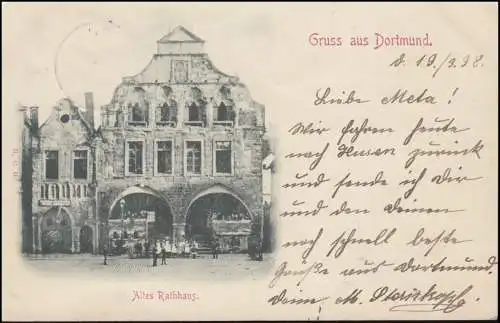 Gruss aus Dortmund.
d. 19./3.98.
Liebe Meta!
Wir fahren heute
nach Husen zurück
und sende ich Dir
und den deinen
noch schnell beste
Grüße aus Dortmund.
Deine M.
Altes Rathhaus.